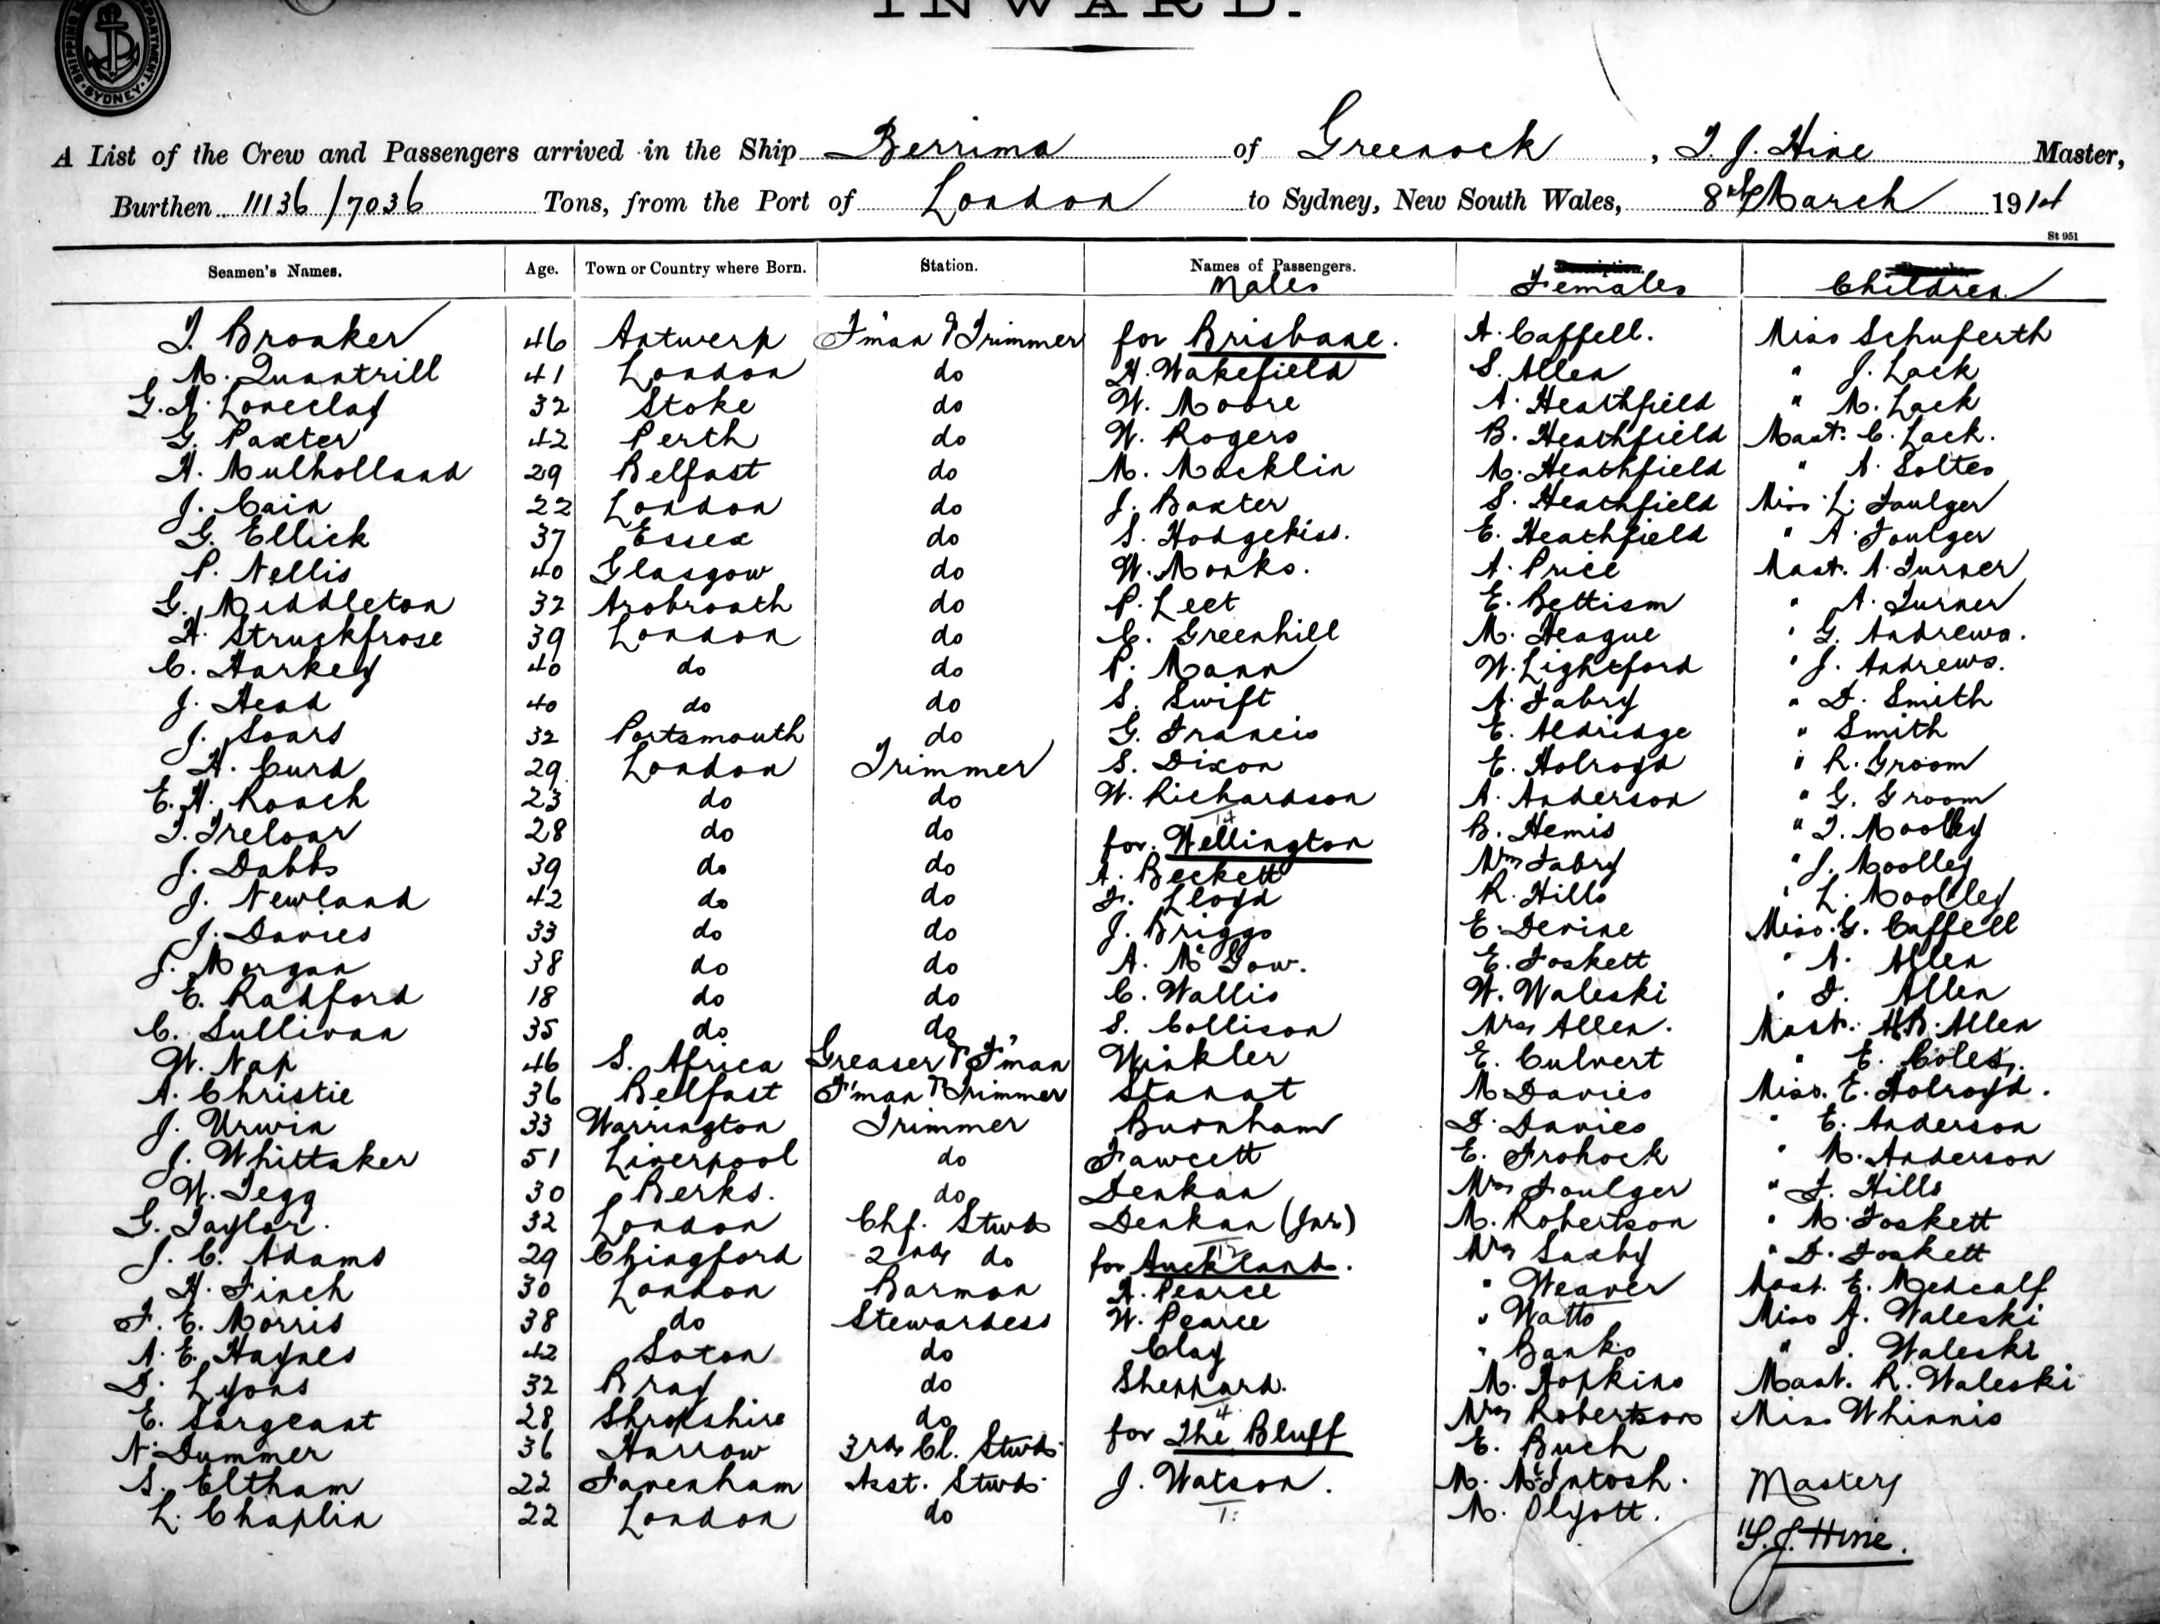 INWARD.
SHIPPING DEPARTMENT SYDNEY
A List of the Crew and Passengers arrived in the Ship Berrima of Greenock, T. J. Hine Master,
Burthen 11136/7036 Tons, from the Port of London to Sydney, New South Wales, 8th March 1914
St 951
Seamen's Names. Age. Town or Country where Born. Station. Names of Passengers. Males Females Children
J. Broaker 46 Antwerp F'man & Trimmer for Brisbane. A. Caffell. Miss Schuferth
M. Quantrill 41 London do H. Wakefield S. Allen " J. Lack
G. A. Loveclay 32 Stoke do W. Moore A. Heathfield " M. Lack
G. Paxter 42 Perth do W. Rogers B. Heathfield Mast. C. Lack.
H. Mulholland 29 Belfast do M. Macklin M. Heathfield " A. Soltes
J. Cain 22 London do J. Baxter S. Heathfield Miss L. Foulger
G. Ellick 37 Essex do S. Hodgekiss. E. Heathfield " A. Foulger
P. Nellis 40 Glasgow do W. Monks. A. Price Mast. A. Turner
G. Middleton 32 Arobroath do P. Leet E. Bettism " A. Turner
H. Struckfrose 39 London do C. Greenhill M. Heague " G. Andrews.
C. Harkey 40 do do P. Mann W. Lightford " J. Andrews.
J. Head 40 do do S. Swift A. Fabry " D. Smith
J. Soars 32 Portsmouth do G. Francis E. Aldridge " Smith
H. Curd 29 London Trimmer S. Dixon E. Holroyd " R. Groom
E. H. Roach 23 do do W. Richardson A. Anderson " G. Groom
T. Treloar 28 do do for Wellington B. Hemis " T. Moolley
J. Dabbs 39 do do A. Beckett Mrs Fabry " J. Moolley
J. Newland 42 do do F. Lloyd R. Hills " L. Moolley
J. Davies 33 do do J. Briggs E. Devine Miss. G. Caffell
J. Morgan 38 do do A. McGow. E. Foskett " A. Allen
E. Radford 18 do do C. Wallis W. Waleski " D. Allen
C. Sullivan 35 do do S. Collison Mrs Allen. Mast. H. B. Allen
W. Nap 46 S. Africa Greaser & F'man Winkler E. Culvert " E. Coles.
A. Christie 36 Belfast F'man & Trimmer Stanat M. Davies Miss. E. Holroyd.
J. Urwin 33 Warrington Trimmer Burnham D. Davies " E. Anderson
J. Whittaker 51 Liverpool do Fawcett E. Frohock " M. Anderson
W. Tegg 30 Berks. do Denkan Mrs Foulger " F. Hills
G. Taylor. 32 London Chf. Stwd Denkan (Jnr) M. Robertson " M. Foskett
J. C. Adams 29 Chingford 2nd do for Auckland. Mrs Saxby " D. Foskett
H. Finch 30 London Barman A. Pearce " Weaver Mast. E. Medcalf
F. E. Morris 38 do Stewardess W. Pearce " Watts Miss A. Waleski
A. E. Haynes 42 Soton do Clay " Banks " Waleski
D. Lyons 32 Bray do Sheppard. M. Hopkins Mast. R. Waleski
E. Sargeant 28 Shropshire do for The Bluff Mrs Robertson Miss Whinnis
N. Dummer 36 Harrow 3rd Cl. Stwd. E. Buch
S. Eltham 22 Favenham Asst. Stwd. J. Watson. M. McIntosh. Master
L. Chaplin 22 London do M. Olyott.
T. J. Hine.